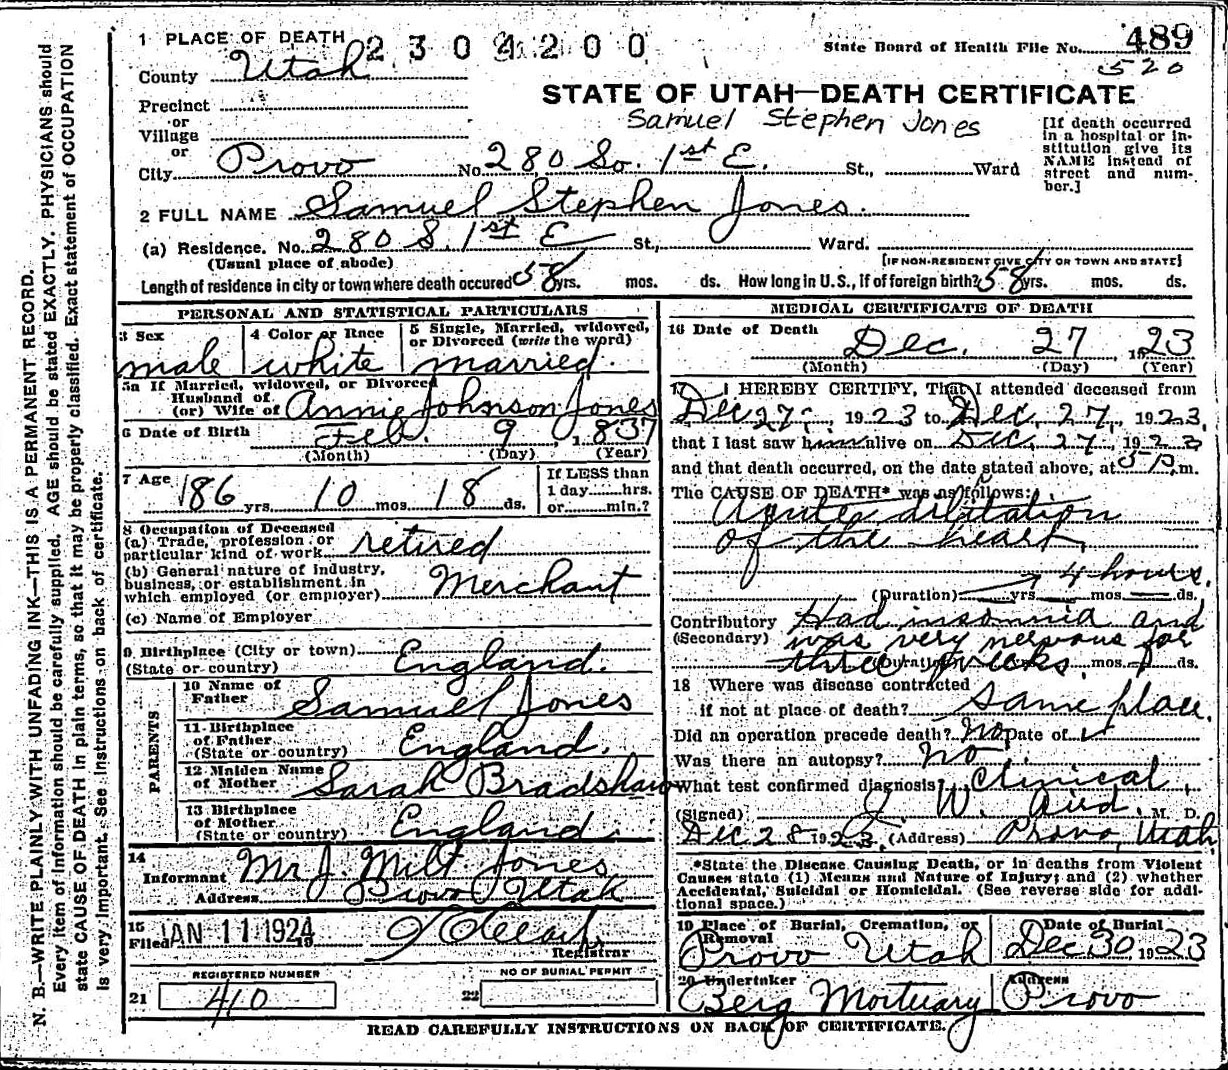 1 PLACE OF DEATH 2304200
State Board of Health File No. 489
520
County Utah
STATE OF UTAH—DEATH CERTIFICATE
Samuel Stephen Jones
Precinct
or
Village
or
City Provo No. 280 So. 1st E. St., Ward
[If death occurred
in a hospital or in-
stitution give its
NAME instead of
street and num-
ber.]
2 FULL NAME Samuel Stephen Jones.
(a) Residence. No. 280 S. 1st E St., Ward.
(Usual place of abode)
[IF NON-RESIDENT GIVE CITY OR TOWN AND STATE]
Length of residence in city or town where death occured 58 yrs. mos. ds. How long in U.S., if of foreign birth? 58 yrs. mos. ds.
PERSONAL AND STATISTICAL PARTICULARS
3 Sex
male
4 Color or Race
white
5 Single, Married, widowed,
or Divorced (write the word)
married.
5a If Married, widowed, or Divorced
Husband of
(or) Wife of Annie Johnson Jones
6 Date of Birth Feb. 9, 1837
(Month) (Day) (Year)
7 Age 86 yrs. 10 mos. 18 ds.
If LESS than
1 day......hrs.
or......min.?
8 Occupation of Deceased
(a) Trade, profession or
particular kind of work retired
(b) General nature of industry,
business, or establishment in
which employed (or employer) Merchant
(c) Name of Employer
9 Birthplace (City or town)
(State or country) England.
PARENTS
10 Name of
Father Samuel Jones
11 Birthplace
of Father
(State or country) England.
12 Maiden Name
of Mother Sarah Bradshaw
13 Birthplace
of Mother
(State or country) England.
14
Informant Mr J. Milt Jones
Address Provo Utah
15
Filed JAN 11 1924 19
Registrar
REGISTERED NUMBER
21 410
NO OF BURIAL PERMIT
22
MEDICAL CERTIFICATE OF DEATH
16 Date of Death Dec. 27, 1923
(Month) (Day) (Year)
17 I HEREBY CERTIFY, That I attended deceased from
Dec 27, 1923 to Dec. 27, 1923
that I last saw him alive on Dec. 27, 1923
and that death occurred, on the date stated above, at 5 P.m.
The CAUSE OF DEATH* was as follows:
Acute dilitation
of the heart
4 hours.
(Duration) yrs. mos. ds.
Contributory Had insomnia and
(Secondary) was very nervous for
three weeks. (Duration) mos. ds.
18 Where was disease contracted
if not at place of death? same place.
Did an operation precede death? No Date of
Was there an autopsy? No
What test confirmed diagnosis? Clinical
(Signed) J. W. Aird. M. D.
Dec 28 1923. (Address) Provo, Utah
*State the Disease Causing Death, or in deaths from Violent
Causes state (1) Means and Nature of Injury; and (2) whether
Accidental, Suicidal or Homicidal. (See reverse side for addi-
tional space.)
19 Place of Burial, Cremation, or
Removal
Provo Utah
Date of Burial
Dec 30 1923
20 Undertaker
Berg Mortuary
Address
Provo
READ CAREFULLY INSTRUCTIONS ON BACK OF CERTIFICATE.
N. B.—WRITE PLAINLY WITH UNFADING INK—THIS IS A PERMANENT RECORD.
Every item of information should be carefully supplied. AGE should be stated EXACTLY. PHYSICIANS should
state CAUSE OF DEATH in plain terms, so that it may be properly classified. Exact statement of OCCUPATION
is very important. See instructions on back of certificate.